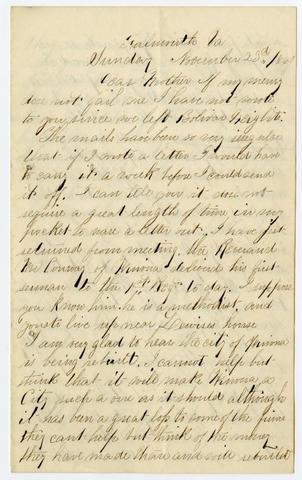 Falmouth Va
Sunday November 23rd /62
Dear Mother If my memry
dose not fail me I have not wrote
to you since we left Bolivar Heights.
The mails have been so very iregular
that if I wrote a letter I would have
to carry it a week before I could send
it off. I can tell you it dose not
require a great length of time in my
pocket to ware a letter out. I have just
returned from meeting. the Reverand
Mr Conway of Winona delivered his first
surman to the 1st Regt to day. I supose
you know him. he is a methodist, and
youst to live up near Lewises house
I am very glad to hear the city of Winona
is being rebuilt. I cannot help but
think that it will make Winona a
City such a one as it should although
it has been a great loss to some of the firms
they cant help but think of the money
they have made thare and will rebuild